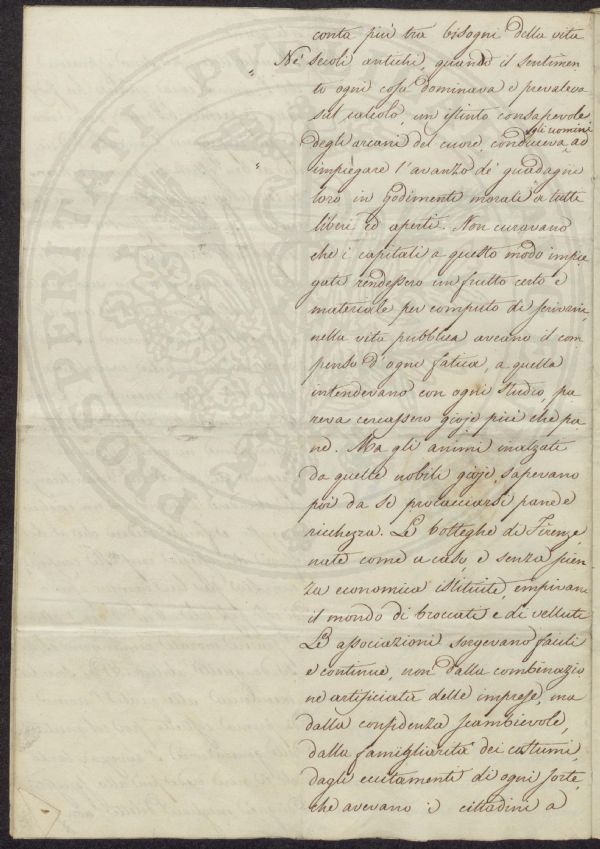 conta più tra bisogni della vita
Né secoli antichi, quando il sentimen
to ogni cosa dominava e prevaleva
sul calcolo, un istinto consapevole
degli arcani del cuore, conduceva gli uomini ad
impiegare l'avanzo de' guadagni
loro in godimenti morali a tutti
liberi ed aperti. Non curavano
che i capitali a questo modo impie
gati rendessero un frutto certo e
materiale per computo di scrivani,
nella vita pubblica aveano il com
penso d'ogni fatica, a quella
intendevano con ogni studio, pa
reva cercassero gioje più che pa
ne. Ma gli animi inalzati
da quelle nobili gioje, sapevano
poi da se procacciarsi pane e
ricchezza. Le botteghe di Firenze,
nate come a caso, e senza scien
za economica istituite empivano
il mondo di broccati e di velluti
Le associazioni sorgevano facili
e continue, non dalla combinazio
ne artificiata delle imprese, ma
dalla confidenza scambievole,
dalla famigliarità dei costumi,
dagli eccitamenti di ogni sorte,
che avevano i cittadini a
PROSPERITATI PUBLICAE